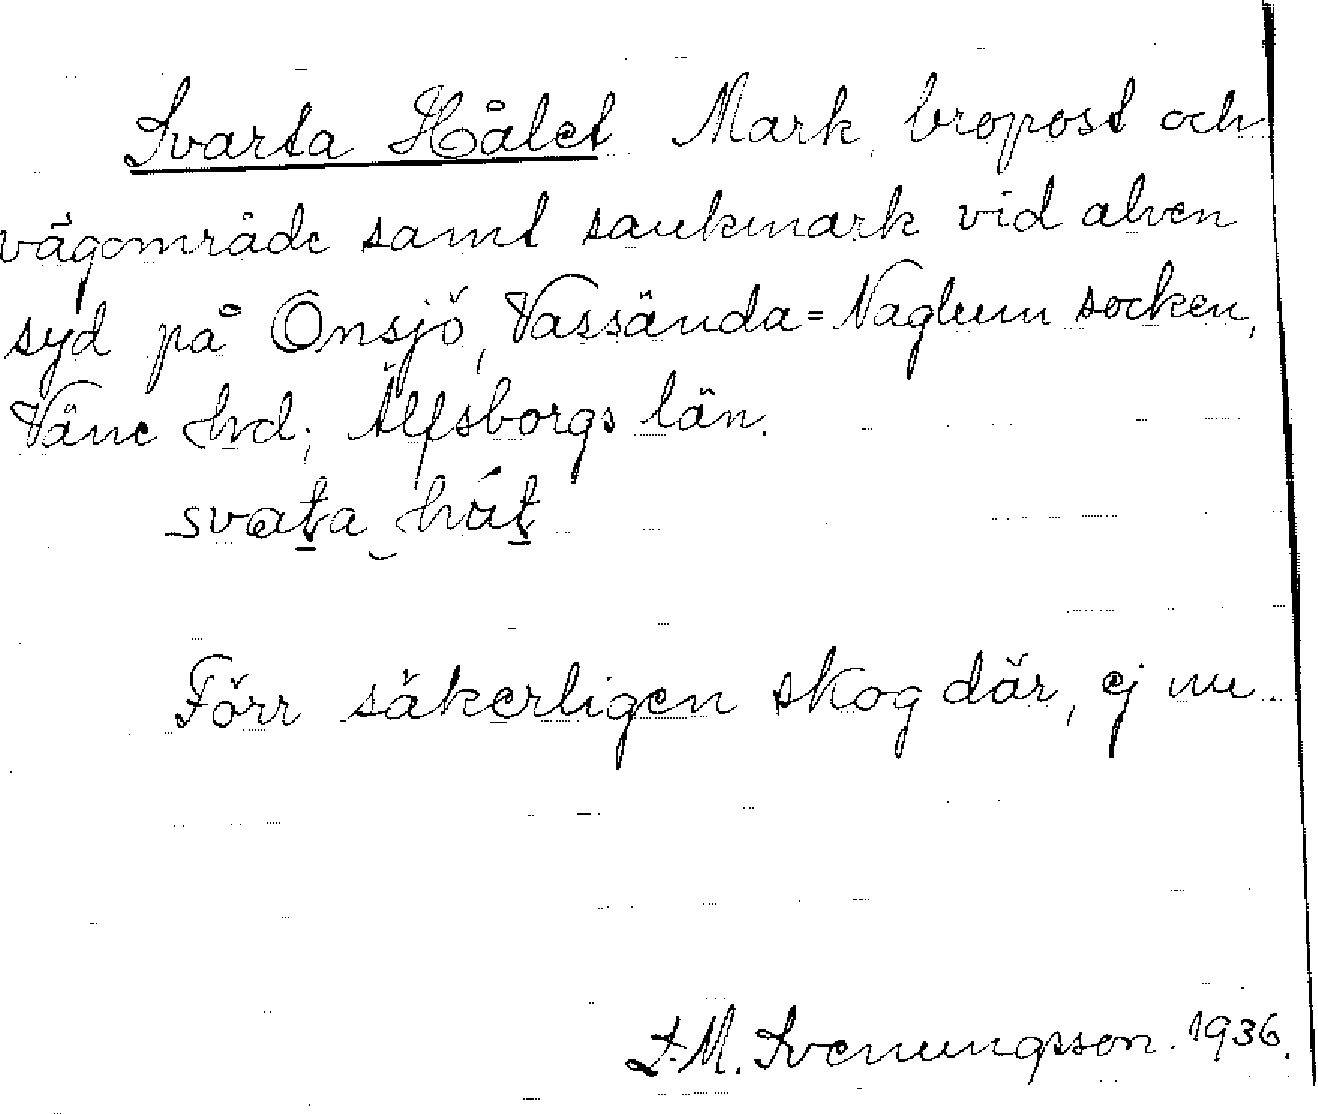 Svarta Hålet Mark, bropost och
vägområde samt sankmark vid alven
syd på Onsjö, Vassända=Naglum socken,
Väne hd; Älfsborgs län.
svaṯa‿
Förr säkerligen skog där, ej nu
M. Svenungsson. 1936.